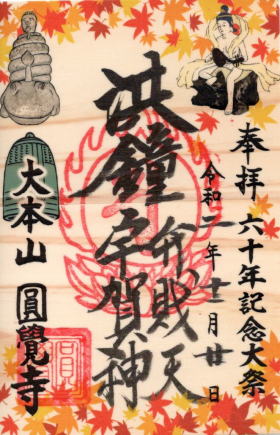 奉拝 六十年記念大祭
令和二年十一月廿日
洪鐘
弁財天
宇賀神
大本山 圓覺寺